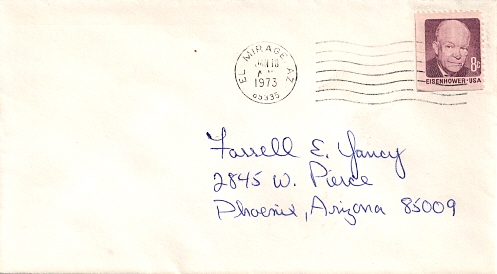 EL MIRAGE, AZ
JAN 18
1973
85335
8c
EISENHOWER·USA
Farrell E. Yancy
2845 W. Pierce
Phoenix, Arizona 85009